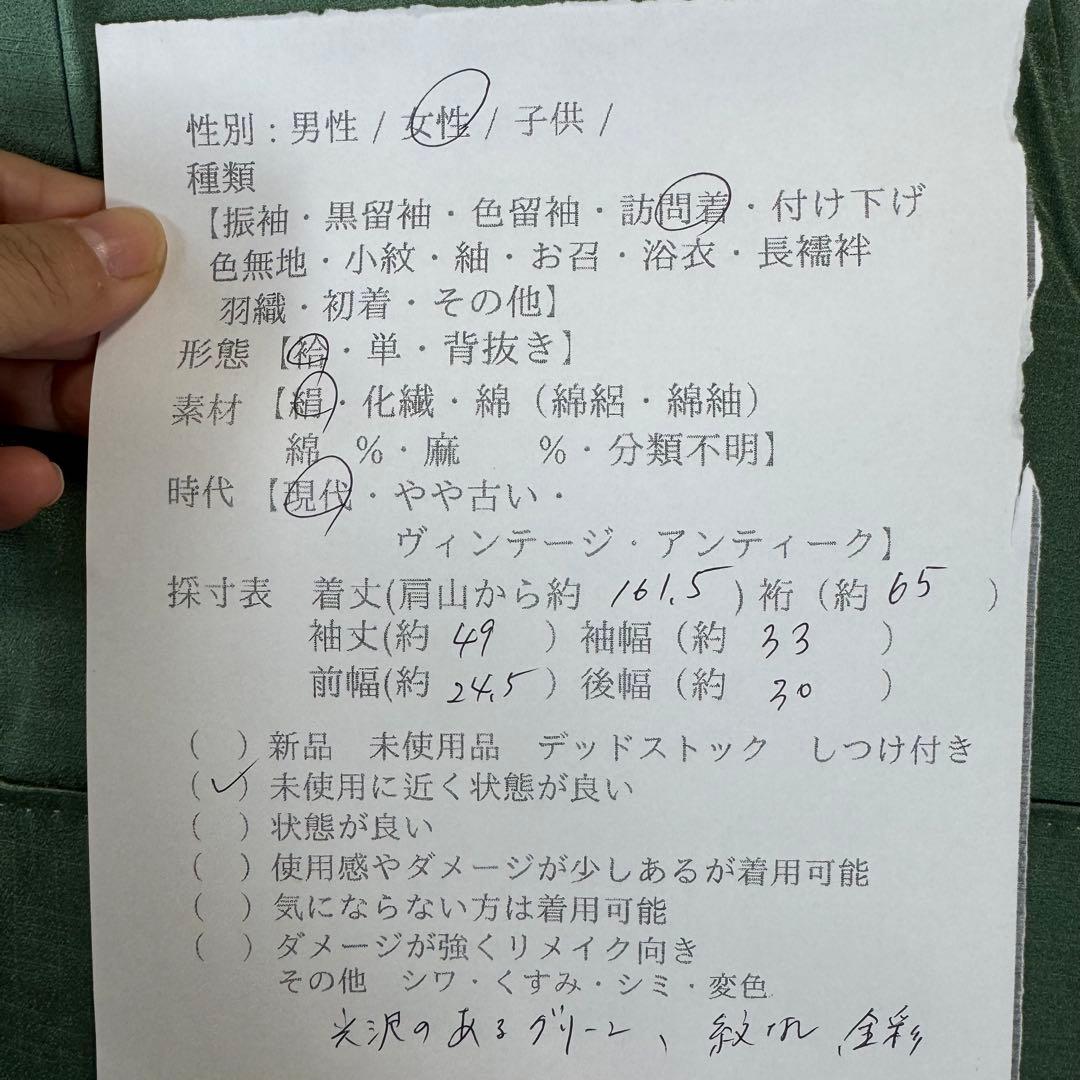 性別：男性 / 女性 / 子供 /
種類
【振袖・黒留袖・色留袖・訪問着・付け下げ
色無地・小紋・紬・お召・浴衣・長襦袢
羽織・初着・その他】
形態【袷・単・背抜き】
素材【絹・化繊・綿（綿絽・綿紬）
綿　％・麻　　％・分類不明】
時代【現代・やや古い・
ヴィンテージ・アンティーク】
採寸表　着丈(肩山から約 161.5 ) 裄（約 65 ）
袖丈(約 49 ）袖幅（約 33 ）
前幅(約 24.5 ）後幅（約 30 ）
（　）新品　未使用品　デッドストック　しつけ付き
（✓）未使用に近く状態が良い
（　）状態が良い
（　）使用感やダメージが少しあるが着用可能
（　）気にならない方は着用可能
（　）ダメージが強くリメイク向き
その他　シワ・くすみ・シミ・変色
光沢のあるグリーン、紋、金彩